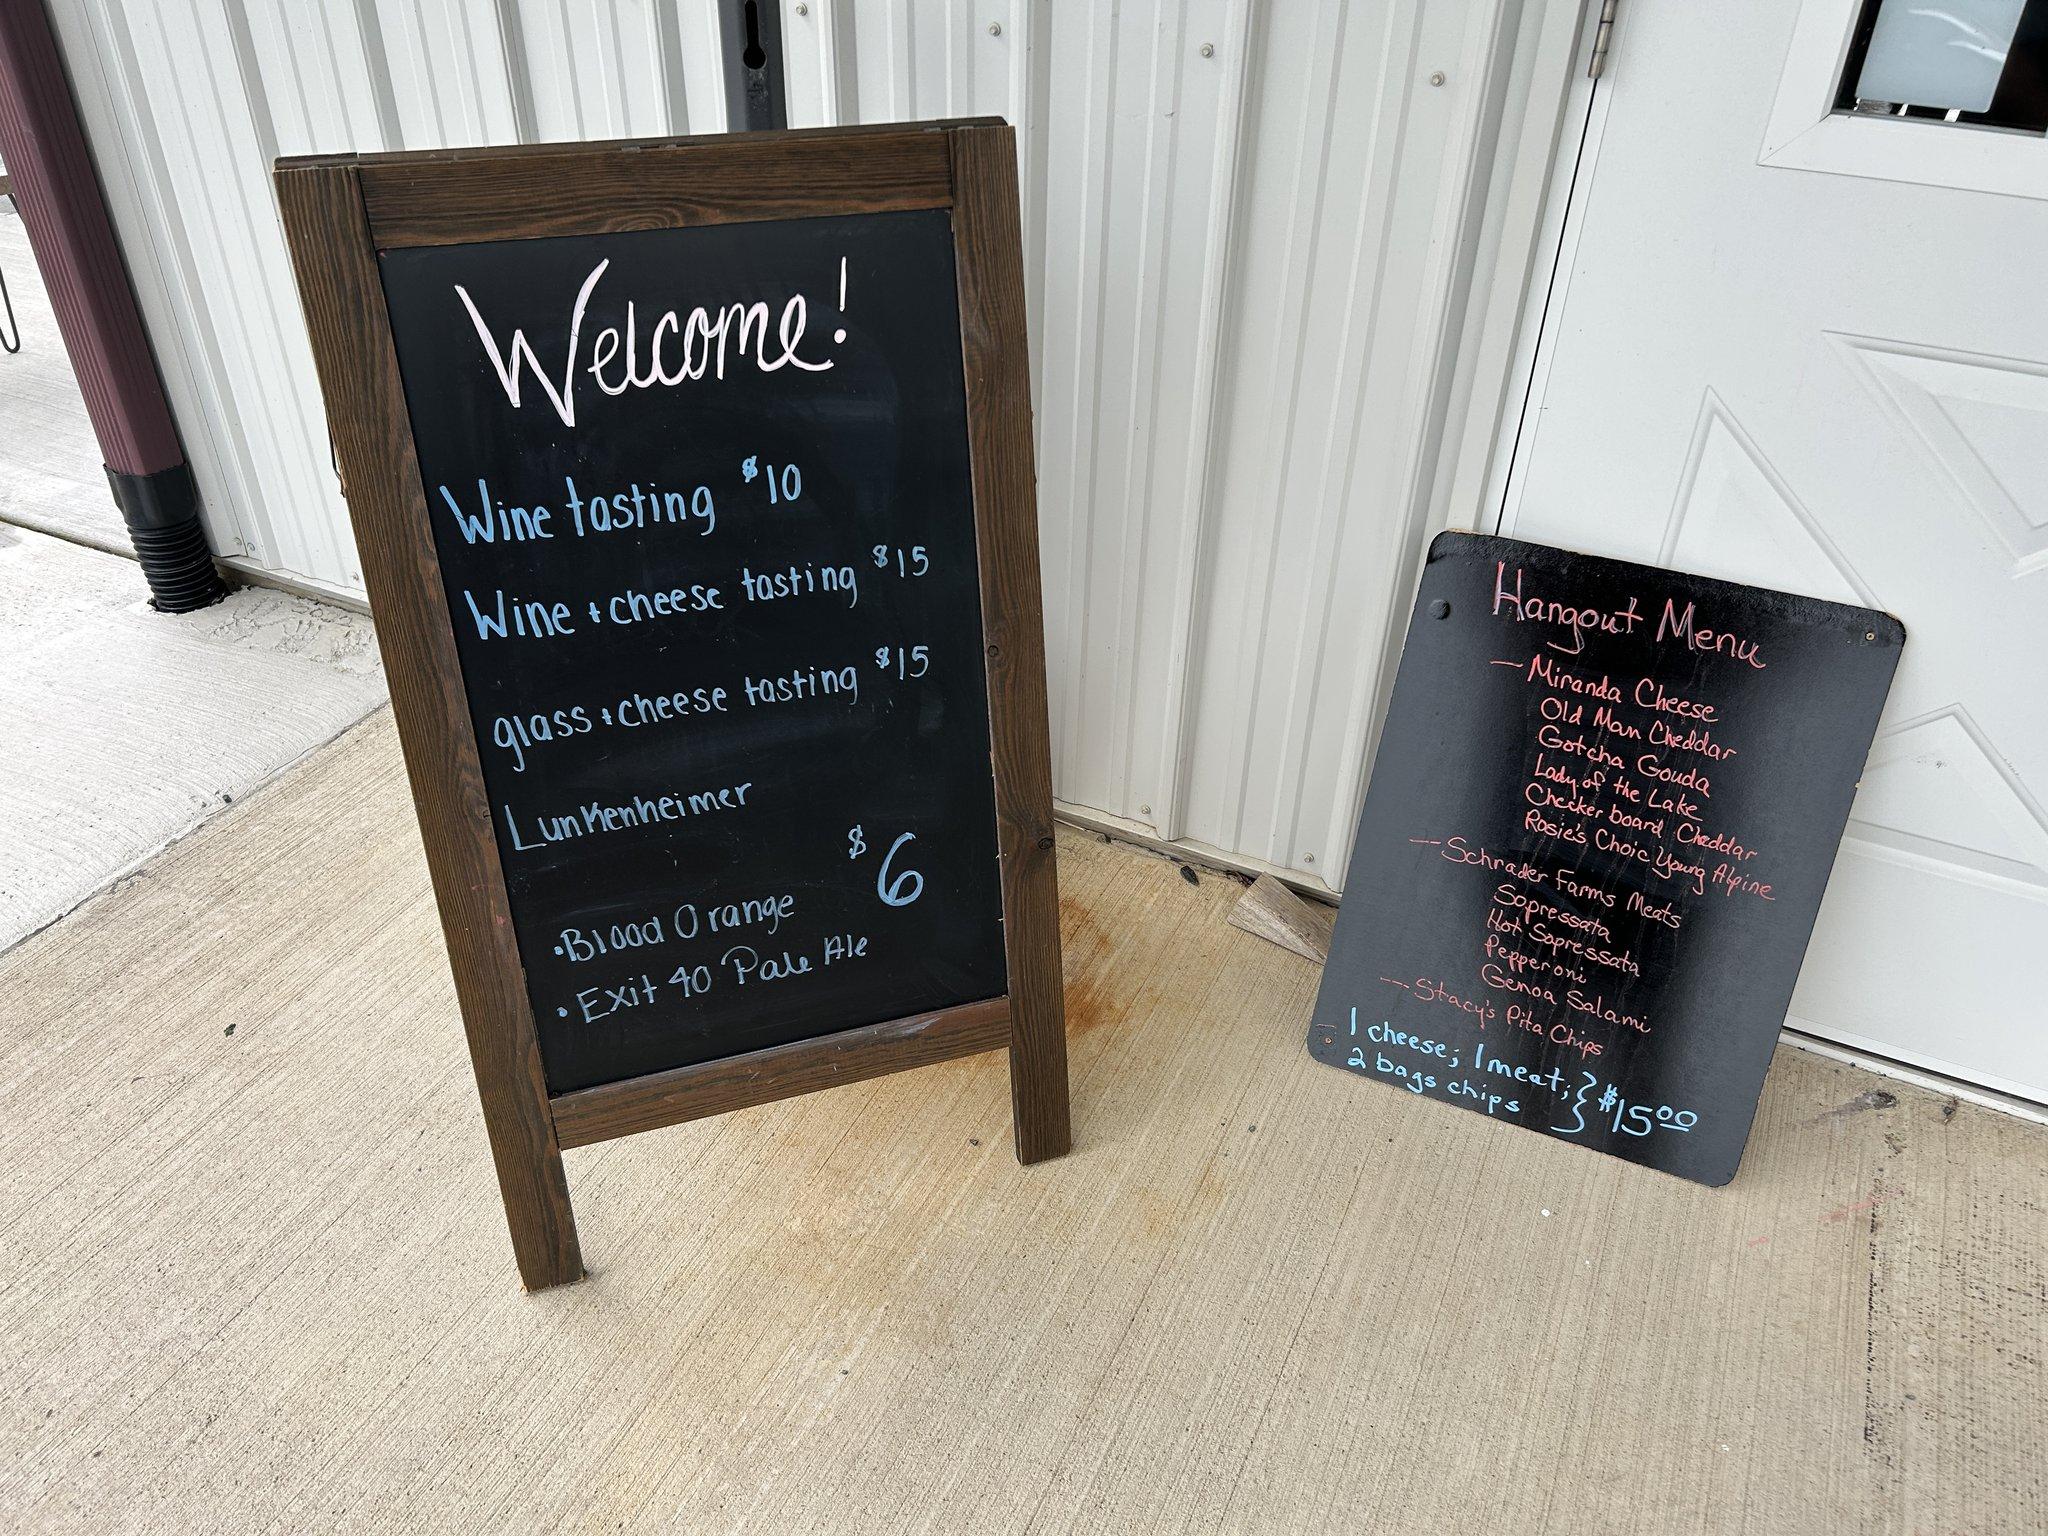 Welcome!
Wine tasting $10
Wine + cheese tasting $15
glass + cheese tasting $15
Lunkenheimer
$6
• Blood Orange
• Exit 40 Pale Ale
Hangout Menu
— Miranda Cheese
Old Man Cheddar
Gotcha Gouda
Lady of the Lake
Checker board Cheddar
Rosie's Choic Young Alpine
— Schrader Farms Meats
Sopressata
Hot Sopressata
Pepperoni
Genoa Salami
— Stacy's Pita Chips
1 cheese; 1 meat; } $15.00
2 bags chips